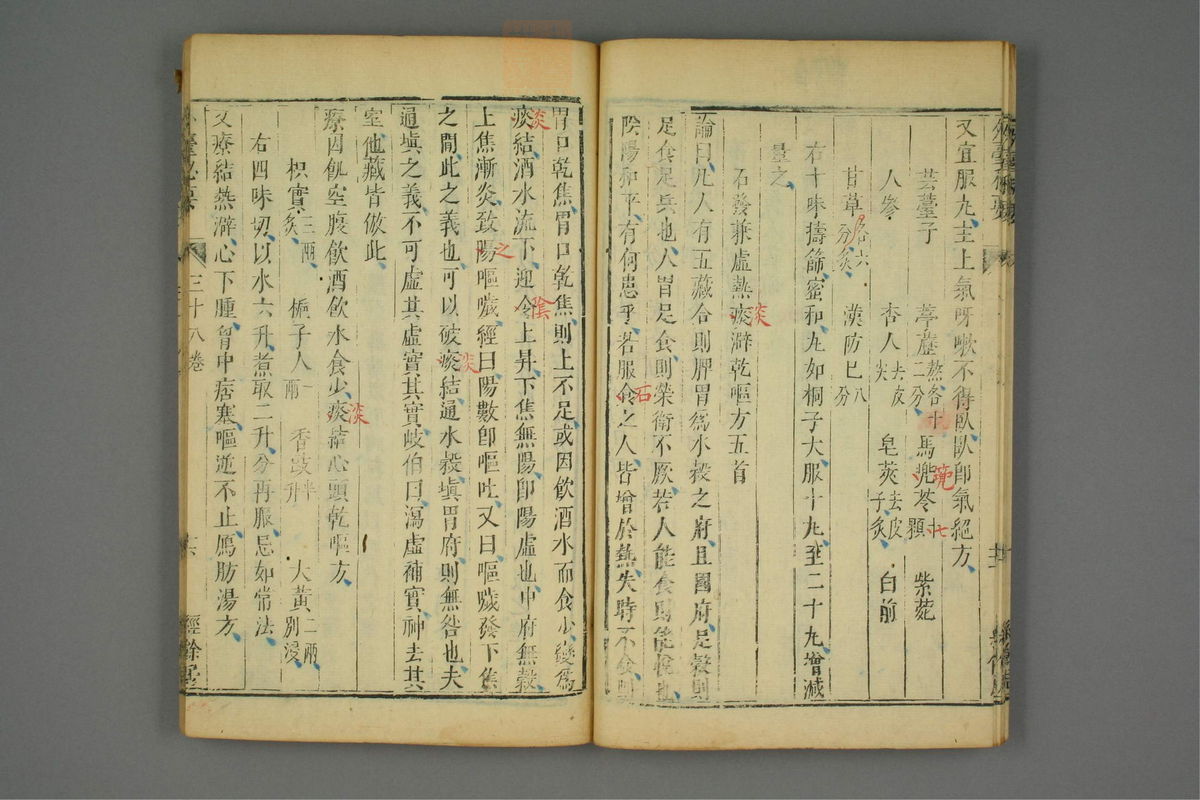 又宜服丸主上氣呀嗽不得臥臥卽氣絕方
芸薹子 葶藶二分熬各十 馬兜苓七顆 紫菀
人參 杏人去皮尖 皂莢去皮子炙 白前
甘草炙各六分 漢防巳八分
右十味擣篩蜜和丸如桐子大服十丸至二十丸增減
量之
石發兼虛熱痰澼乾嘔方五首
論曰凡人有五藏合則脾胃爲水穀之府且國府足穀則
足食足兵也人胃足食則榮衛不厥若人能食則能悅也
陰陽和平有何患乎若服冷石之人皆增於熱失時不食則
胃口乾焦胃口乾焦則上不足或因飲酒水而食少變爲
痰淡結酒水流下迎冷陰上昇下焦無陽卽陽虛也中府無穀
上焦漸炎致陽之嘔噦經曰陽數卽嘔吐又曰嘔噦發下焦
之間此之義也可以破痰淡結通水穀塡胃府則無咎也夫
通塡之義不可虛其虛實其實岐伯曰瀉虛補實神去其
室他藏皆倣此
療因飢空腹飲酒飲水食少痰淡結心頭乾嘔方
枳實三兩炙 梔子人一兩 香豉半升 大黃二兩別浸
右四味切以水六升煮取二升分再服忌如常法
又療結熱澼心下腫胷中痞塞嘔逆不止鴈肪湯方
外臺秘要 三十八卷 六 經餘居